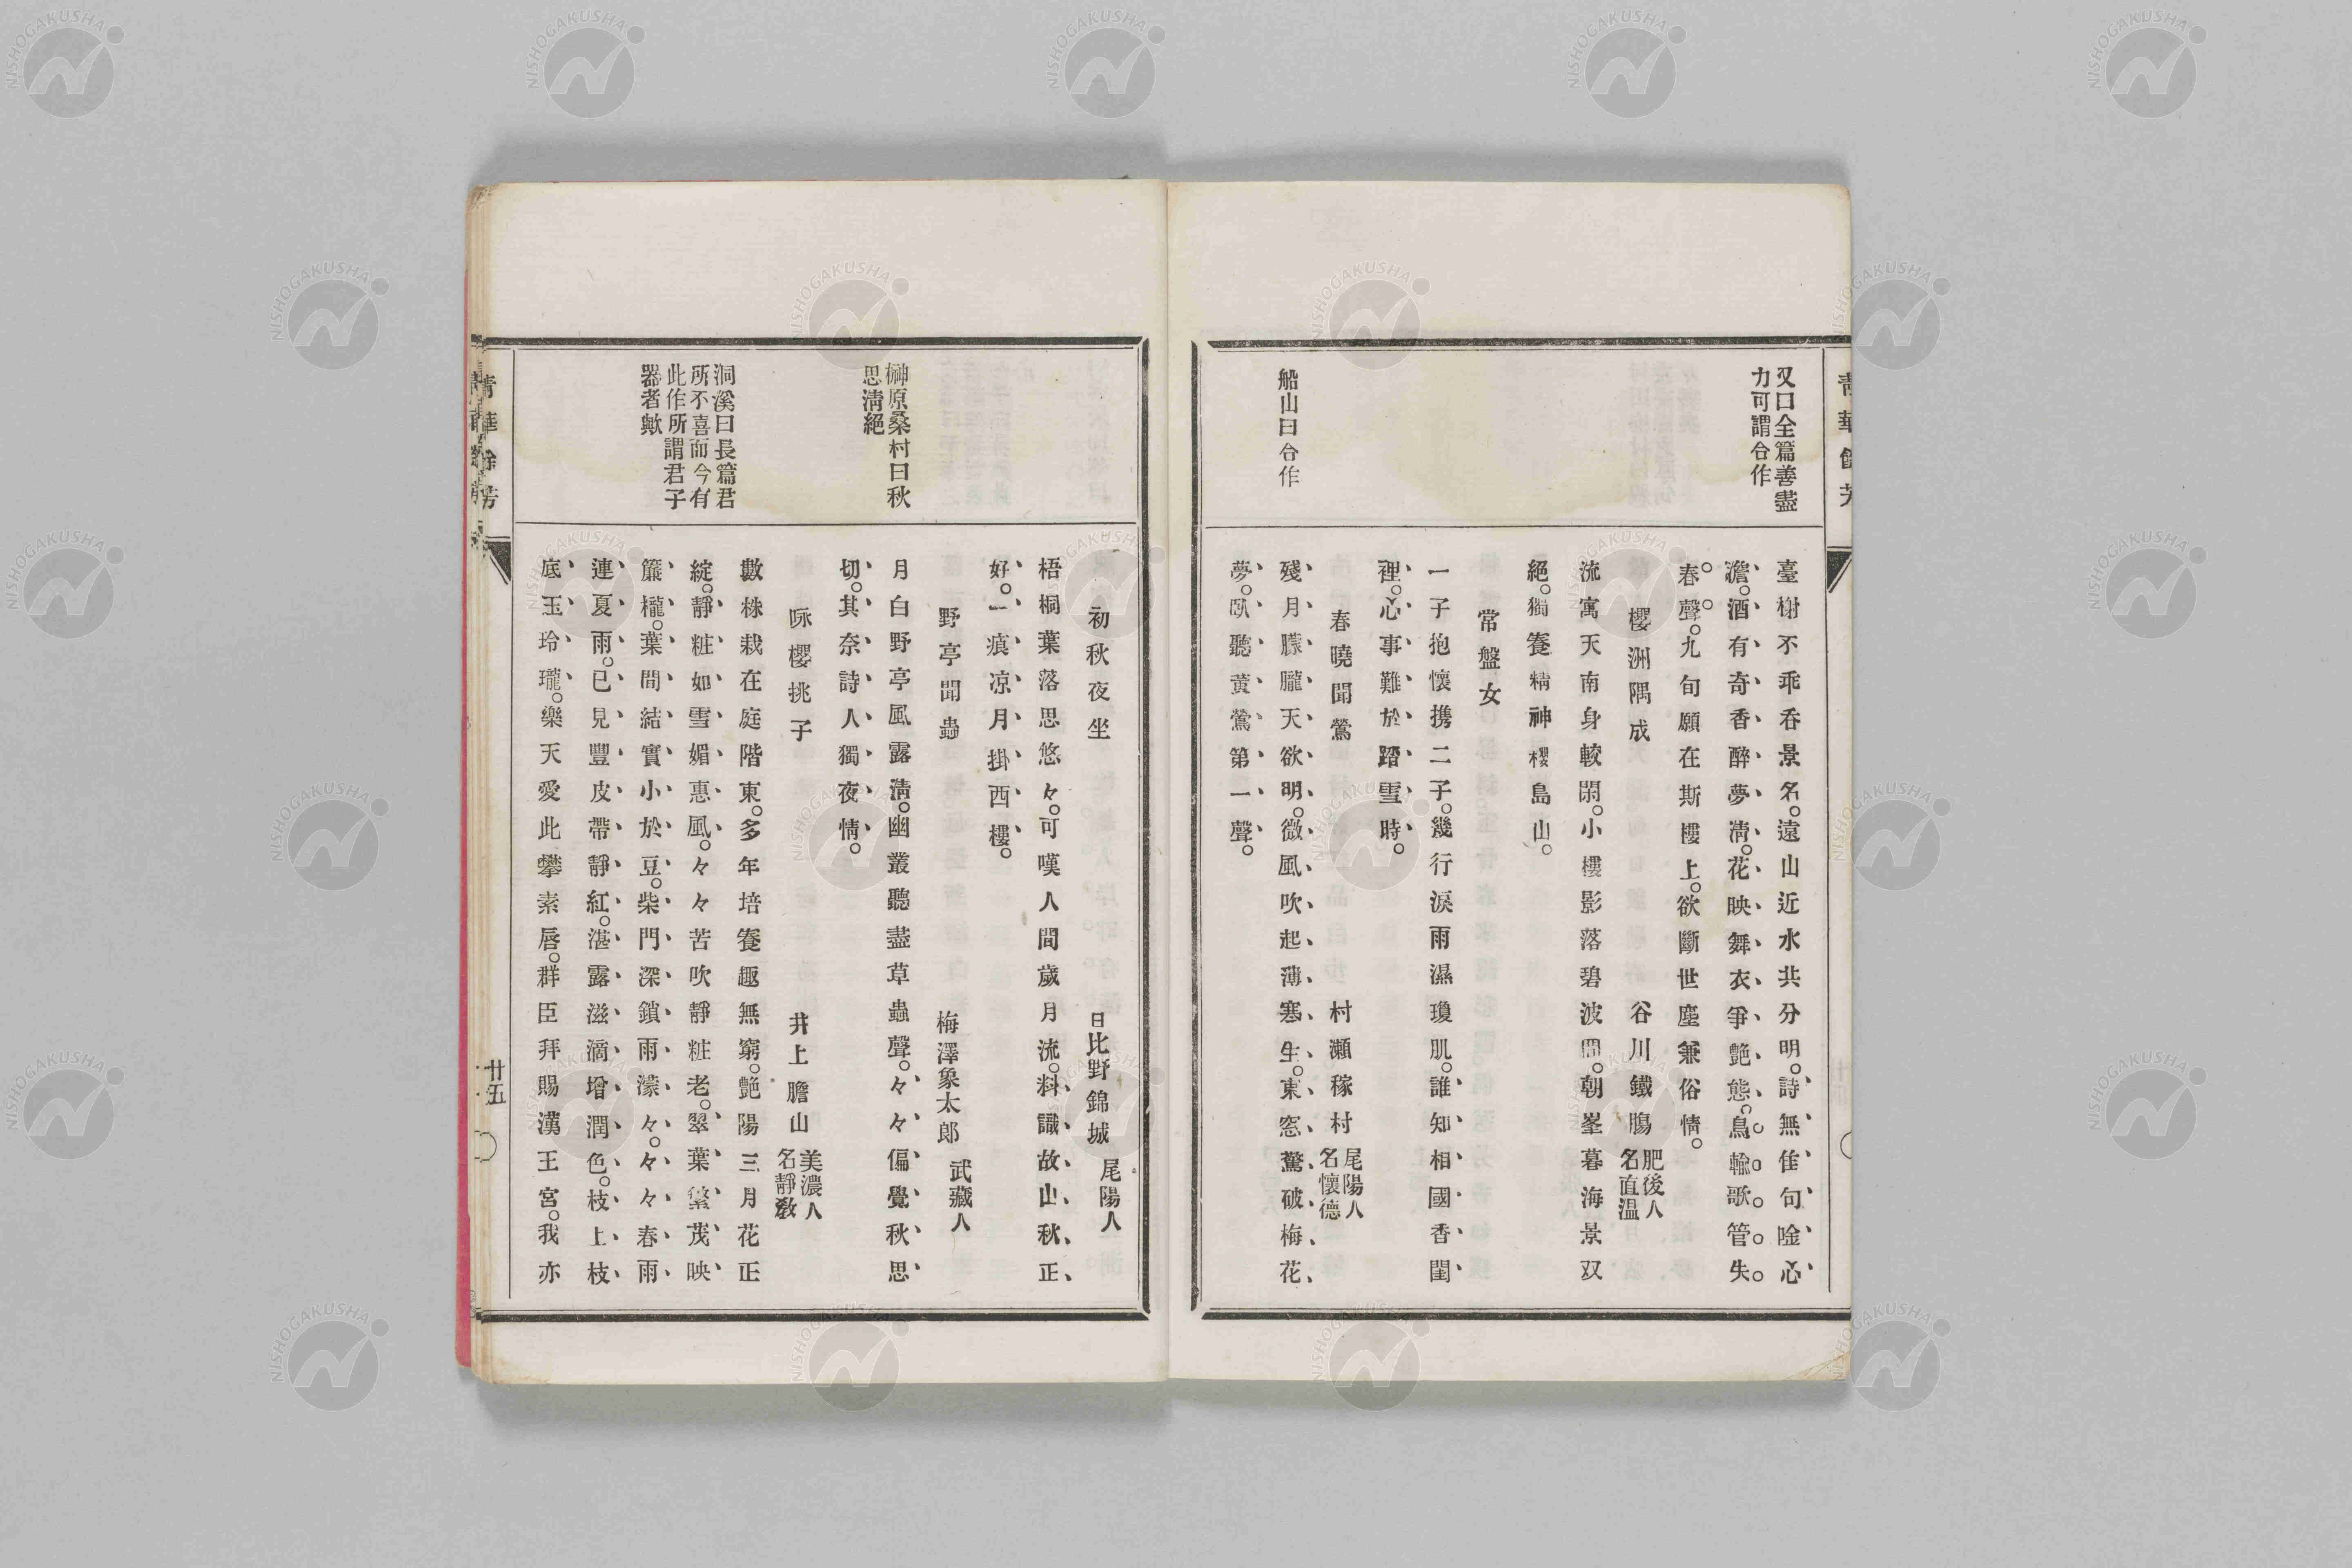 又曰全篇善盡
力可謂合作
臺榭不乖呑景名。遠山近水共分明。詩無佳句唫心
澹。酒有奇香醉夢淸。花映舞衣爭艶態。鳥輸歌管失
春聲。九旬願在斯樓上。欲斷世塵兼俗情。
櫻洲隅成 谷川鐵鵰 肥後人
名直温
流寓天南身較閑。小樓影落碧波間。朝峯暮海景双
絕。獨養精神櫻島山。
常盤女
一子抱懷携二子。幾行淚雨濕瓊肌。誰知相國香閨
裡。心事難於踏雪時。
船山曰合作
春曉聞鶯 村瀨稼村 尾陽人
名懷德
殘月朦朧天欲明。微風吹起薄寒生。東窓驚破梅花
夢。臥聽黃鶯第一聲。
初秋夜坐 日比野錦城 尾陽人
梧桐葉落思悠々。可嘆人間歲月流。料識故山秋正
好。一痕凉月掛西樓。
野亭聞蟲 梅澤象太郎 武藏人
榊原桑村曰秋
思淸絕
月白野亭風露淸。幽叢聽盡草蟲聲。々々偏覺秋思
切。其奈詩人獨夜情。
咏櫻挑子 井上膽山 美濃人
名靜敎
洞溪曰長篇君
所不喜而今有
此作所謂君子
器者歟
數株栽在庭階東。多年培養趣無窮。艶陽三月花正
綻。靜粧如雪媚惠風。々々苦吹靜粧老。翠葉繁茂映
簾櫳。葉間結實小於豆。柴門深鎖雨濛々。々々春雨
連夏雨。已見豐皮帶靜紅。湛露滋滴增潤色。枝上枝
底玉玲瓏。樂天愛此攀素唇。群臣拜賜漢王宮。我亦
淸華餘芳
廿五